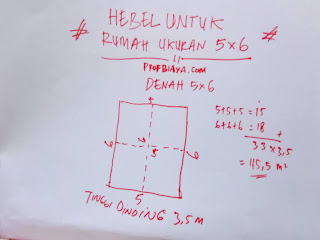 # HEBEL UNTUK #
RUMAH UKURAN 5x6
PROFBIAYA.COM
DENAH 5x6
5
5+5+5 = 15
6+6+6 = 18 +
33 x 3,5
= 115,5 m²
6 5 6
5
TINGGI DINDING 3,5 M